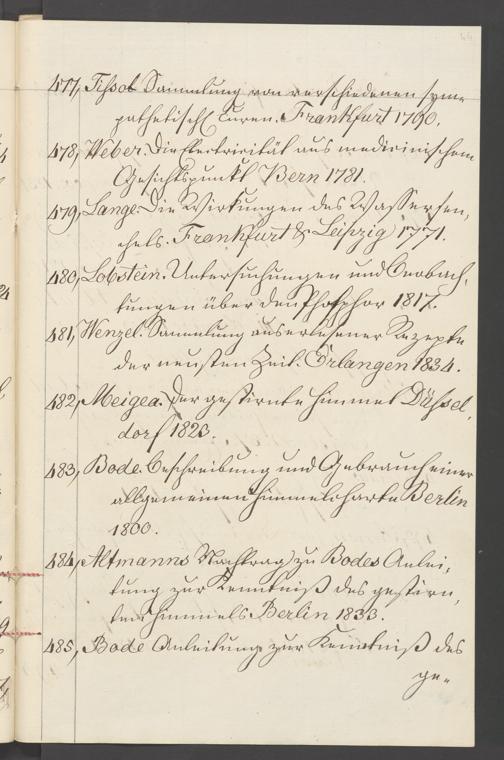 477, Tissot Sammlung von verschiedenen sym=
pathetisch Curen. Frankfurt 1790.
478, Weber. Die Electricität aus medicinischem
Gesichtspunkt Bern 1781.
479, Lange. Die Wirkungen des Wassersen,
chels. Frankfurt & Leipzig 1771.
480, Lobstein. Untersuchungen und Beobach,
tungen über den Phosphor 1817.
481, Wenzel. Sammlung auserlesener Rezepte
der neusten Zeit. Erlangen 1834.
482, Meigea. Der gestirnte Himmel Düssel,
dorf 1823.
483, Bode. Beschreibung und Gebrauch einer
allgemeinen Himmelscharte Berlin
1800.
484, Altmanns Nachtrag zu Bodes Anlei,
tung zur Kenntniß des gestirn,
ten Himmels Berlin 1833.
485, Bode Anleitung zur Kenntniß des
ge=